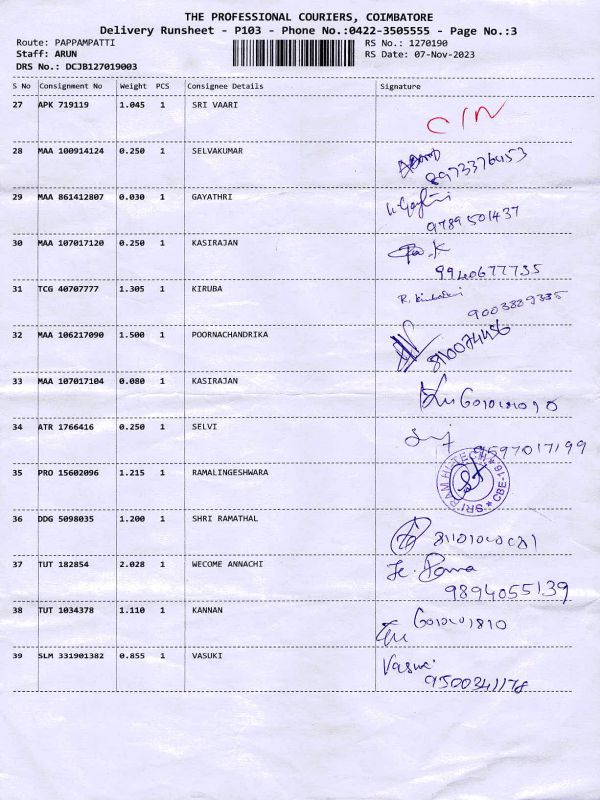 THE PROFESSIONAL COURIERS, COIMBATORE
Delivery Runsheet - P103 - Phone No.:0422-3505555 - Page No.:3
Route: PAPPAMPATTI RS No.: 1270190
Staff: ARUN RS Date: 07-Nov-2023
DRS No.: DCJB127019003
S No Consignment No Weight PCS Consignee Details Signature
27 APK 719119 1.045 1 SRI VAARI
C/N
28 MAA 100914124 0.250 1 SELVAKUMAR
8973376453
29 MAA 861412807 0.030 1 GAYATHRI
9789501437
30 MAA 107017120 0.250 1 KASIRAJAN
9940677735
31 TCG 40707777 1.305 1 KIRUBA
9003889335
32 MAA 106217090 1.500 1 POORNACHANDRIKA
33 MAA 107017104 0.080 1 KASIRAJAN
34 ATR 1766416 0.250 1 SELVI
9597017199
35 PRO 15602096 1.215 1 RAMALINGESHWARA
SRI RAM HI-TECH * CBE-16 *
36 DDG 5098035 1.200 1 SHRI RAMATHAL
37 TUT 182854 2.028 1 WECOME ANNACHI
9894055139
38 TUT 1034378 1.110 1 KANNAN
39 SLM 331901382 0.855 1 VASUKI
9500341178